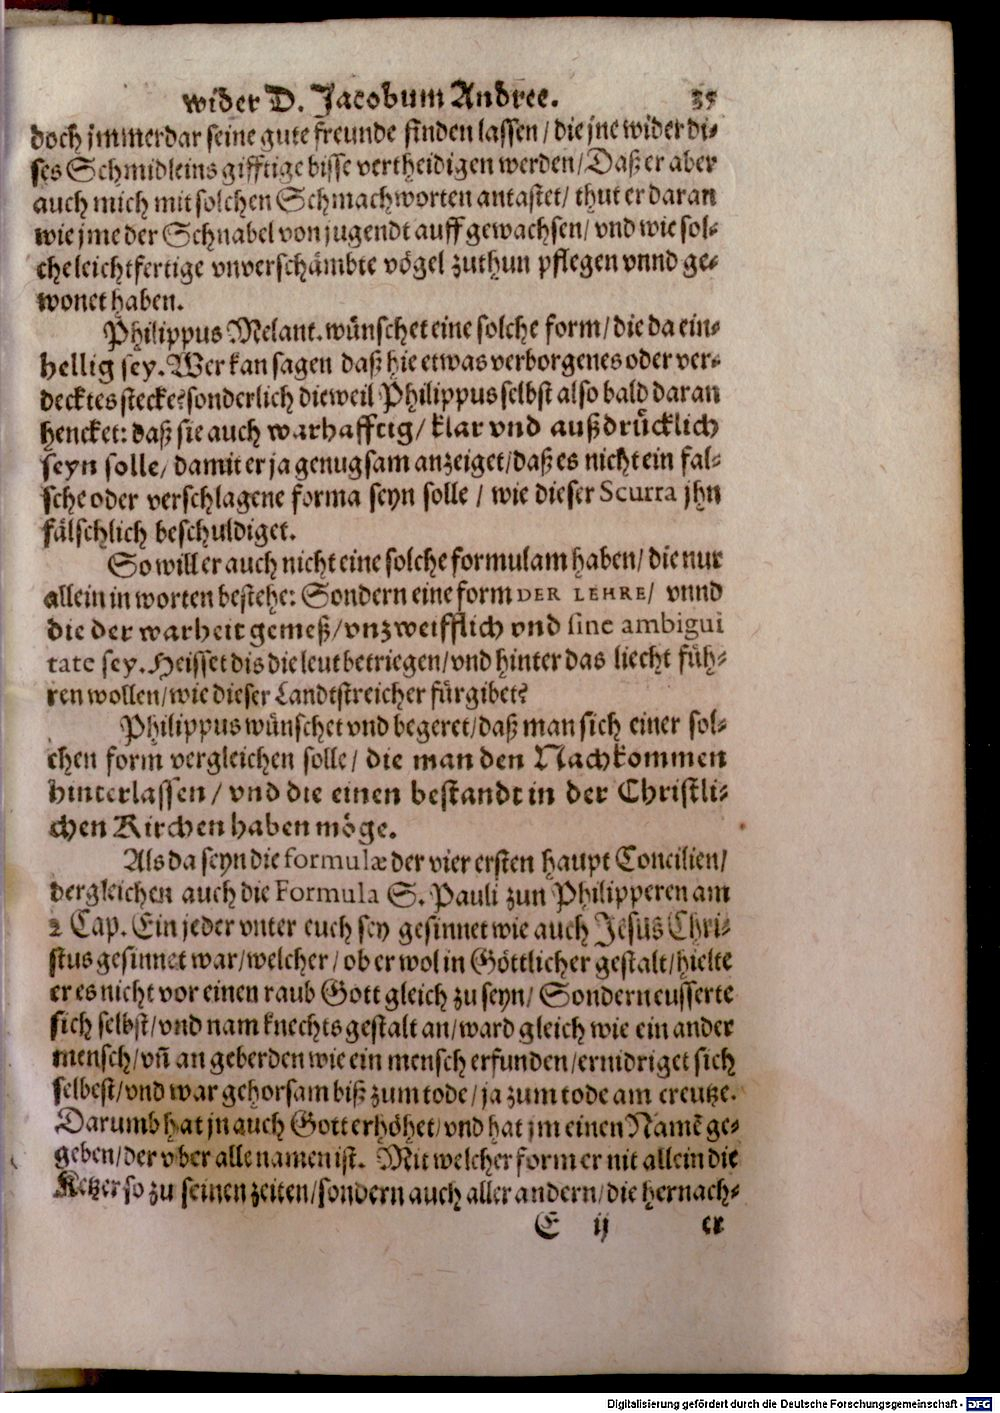 wider D. Jacobum Andree. 35
doch jmmerdar seine gute freunde finden lassen / die jne wider di-
ses Schmidleins gifftige bisse vertheidigen werden / Daß er aber
auch mich mit solchen Schmachworten antastet / thut er daran
wie jme der Schnabel von jugendt auff gewachsen / vnd wie sol-
che leichtfertige vnverschämbte vögel zuthun pflegen vnnd ge-
wonet haben.
Philippus Melant. wünschet eine solche form / die da ein-
hellig sey. Wer kan sagen daß hie etwas verborgenes oder ver-
decktes stecke? sonderlich dieweil Philippus selbst also bald daran
hencket: daß sie auch warhafftig / klar vnd außdrücklich
seyn solle / damit er ja genugsam anzeiget / daß es nicht ein fal-
sche oder verschlagene forma seyn solle / wie dieser Scurra jhn
fälschlich beschuldiget.
So will er auch nicht eine solche formulam haben / die nur
allein in worten bestehe: Sondern eine form DER LEHRE / vnnd
die der warheit gemeß / vnzweifflich vnd sine ambigui
tate sey. Heisset dis die leut betriegen / vnd hinter das liecht füh-
ren wollen / wie dieser Landtstreicher fürgibet?
Philippus wünschet vnd begeret / daß man sich einer sol-
chen form vergleichen solle / die man den Nachkommen
hinterlassen / vnd die einen bestandt in der Christli-
chen Kirchen haben möge.
Als da seyn die formulæ der vier ersten haupt Concilien /
dergleichen auch die Formula S. Pauli zun Philipperen am
2 Cap. Ein jeder vnter euch sey gesinnet wie auch Jesus Chri-
stus gesinnet war / welcher / ob er wol in Göttlicher gestalt / hielte
er es nicht vor einen raub Gott gleich zu seyn / Sondern eusserte
sich selbst / vnd nam knechts gestalt an / ward gleich wie ein ander
mensch / vñ an geberden wie ein mensch erfunden / ernidriget sich
selbest / vnd war gehorsam biß zum tode / ja zum tode am creutze.
Darumb hat jn auch Gott erhöhet / vnd hat jm einen Namẽ ge-
geben / der vber alle namen ist. Mit welcher form er nit allein die
Ketzer so zu seinen zeiten / sondern auch aller andern / die hernach-
E ij er
Digitalisierung gefördert durch die Deutsche Forschungsgemeinschaft - DFG